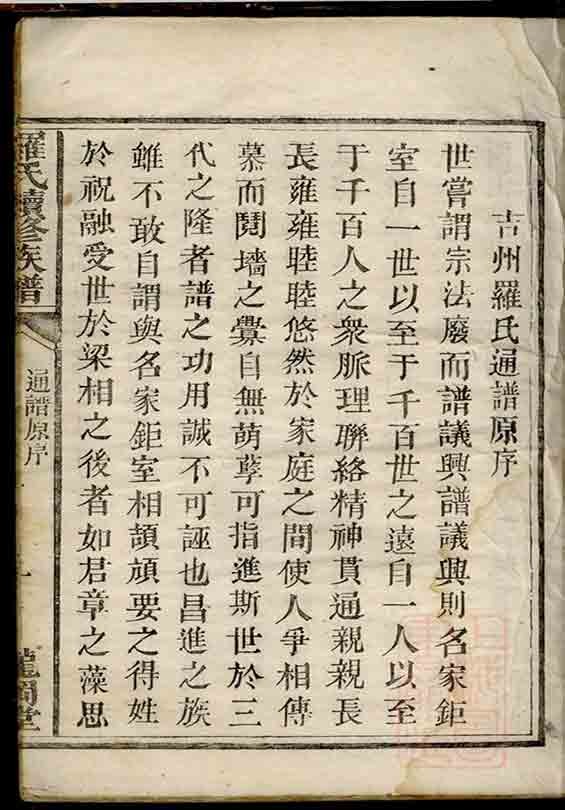 吉州羅氏通譜原序
世嘗謂宗法廢而譜議興譜議興則名家鉅
室自一世以至于千百世之遠自一人以至
于千百人之衆脈理聯絡精神貫通親親長
長雍雍睦睦悠然於家庭之間使人爭相傳
慕而鬩墻之釁自無萌孽可指進斯世於三
代之隆者譜之功用誠不可誣也昌進之族
雖不敢自謂與名家鉅室相頡頏要之得姓
於祝融受世於梁相之後者如君章之藻思
羅氏續修族譜
通譜原序